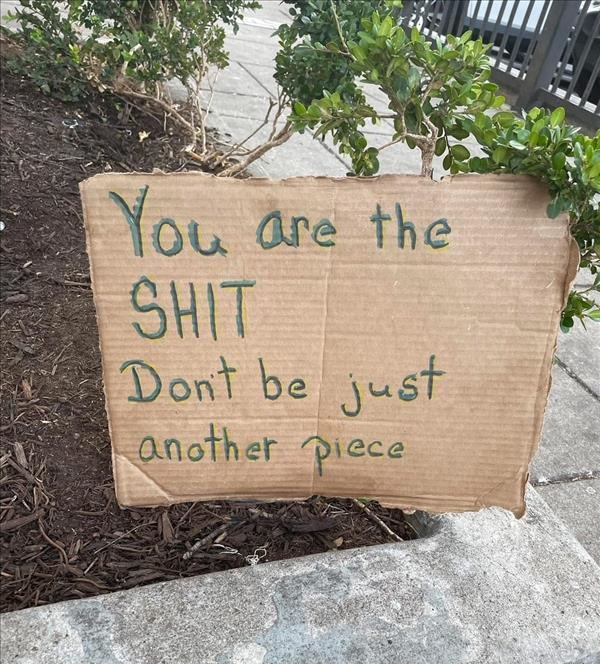 You are the
SHIT
Don't be just
another piece